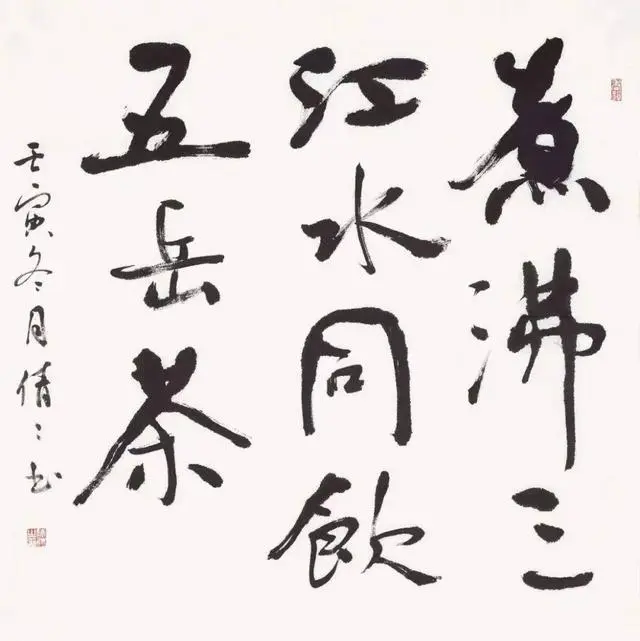 煮沸三
江水同飲
五岳茶
壬寅冬月倩〻书